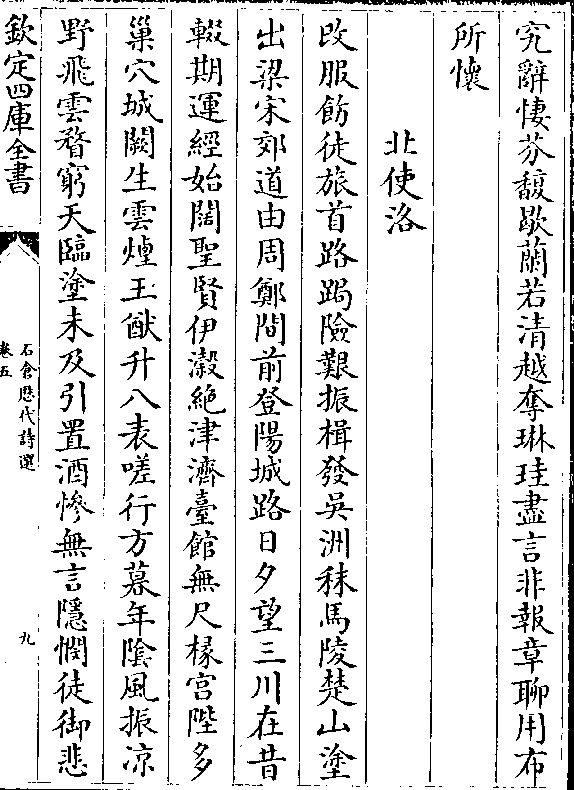 究辭悽芬馥歇蘭若清越奪琳珪盡言非報章聊用布
所懷
北使洛
改服飭徒旅首路跼險艱振楫發吳洲秣馬陵楚山塗
出梁宋郊道由周鄭間前登陽城路日夕望三川在昔
輟期運經始闊聖賢伊瀔絶津濟臺館無尺椽宮陛多
巢穴城闕生雲煙王猷升八表嗟行方暮年隂風振凉
野飛雲瞀窮天臨塗未及引置酒慘無言隱憫徒御悲
欽定四庫全書
石倉歷代詩選
卷五
九